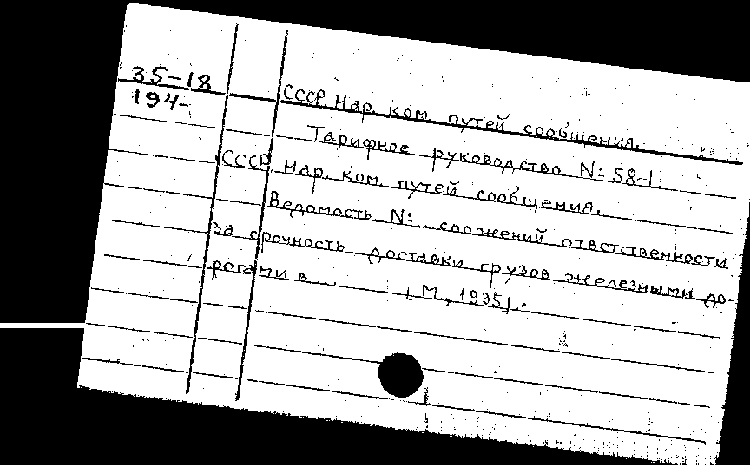 35-18
194-
СССР. Нар. ком. путей сообщения.
Тарифное руководство N: 58-1.
СССР. Нар. ком. путей сообщения.
Ведомость N: сложений ответственности
за срочность доставки грузов железными до-
рогами в ... [М., 1935].